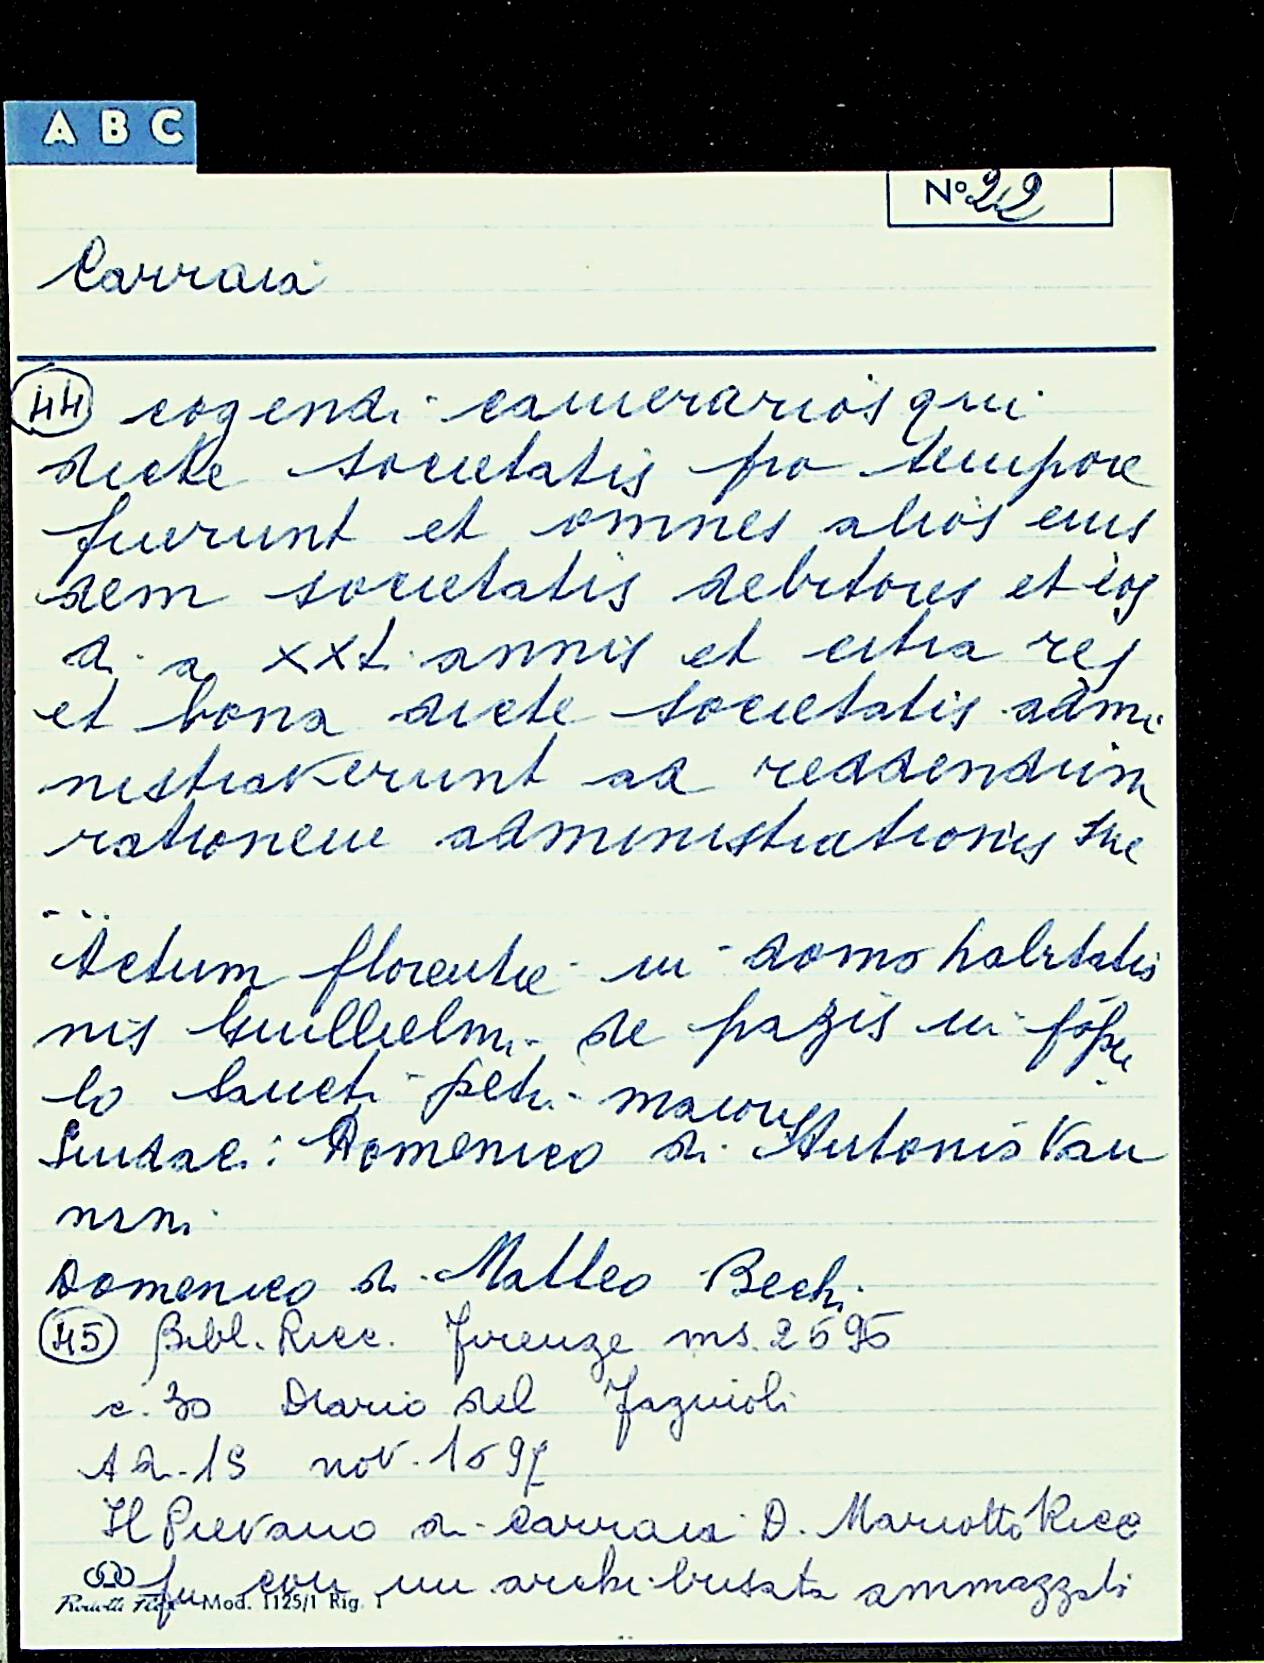 A B C
N° 22
Carraia
44 cogendi camerarios qui
dicte societatis pro tempore
fuerunt et omnes alios eius
dem societatis debitores et eos
a xxv annis et citra res
et bona dicte societatis admi
nistraverunt ad reddendum
rationem administrationis sue
...
Actum florentie in domo habitatio
nis Guillielmi de pazis in popu
lo Sancti petri maioris
Sindaci: Domenico di Antonio Van
nini
Domenico di Matteo Bechi
45 Bibl. Ricc. Firenze ms. 2695
c. 30 Diario del Fagiuoli
A di 19 nov. 1697
Il Pievano di Carraia D. Mariotto Ricc
fu con un archibusata ammazzato
Mod. 1125/1 Rig. 1